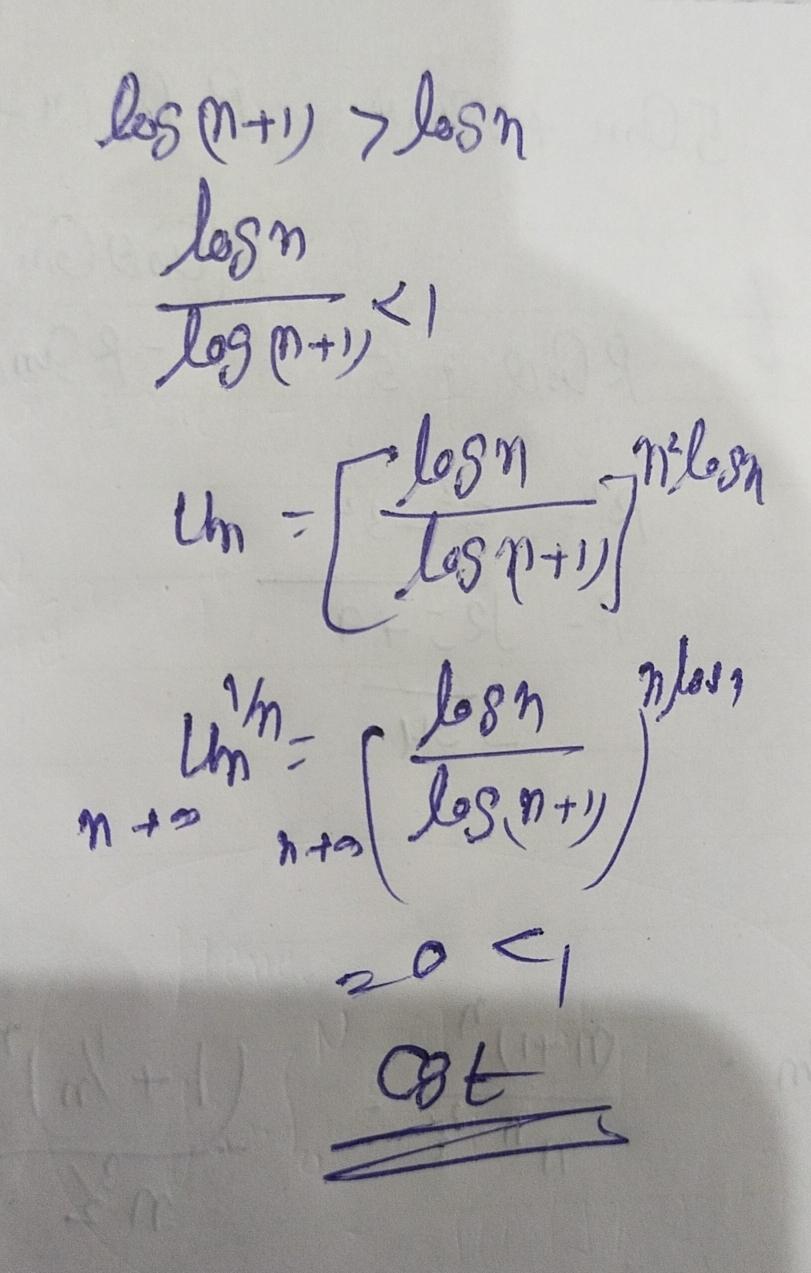 log(n+1) > log n
log n
log(n+1) < 1
Un = [ log n / log(n+1) ]^n² log n
Un^1/n = ( log n / log(n+1) )^n log n
n→∞ n→∞
= 0 < 1
cgt